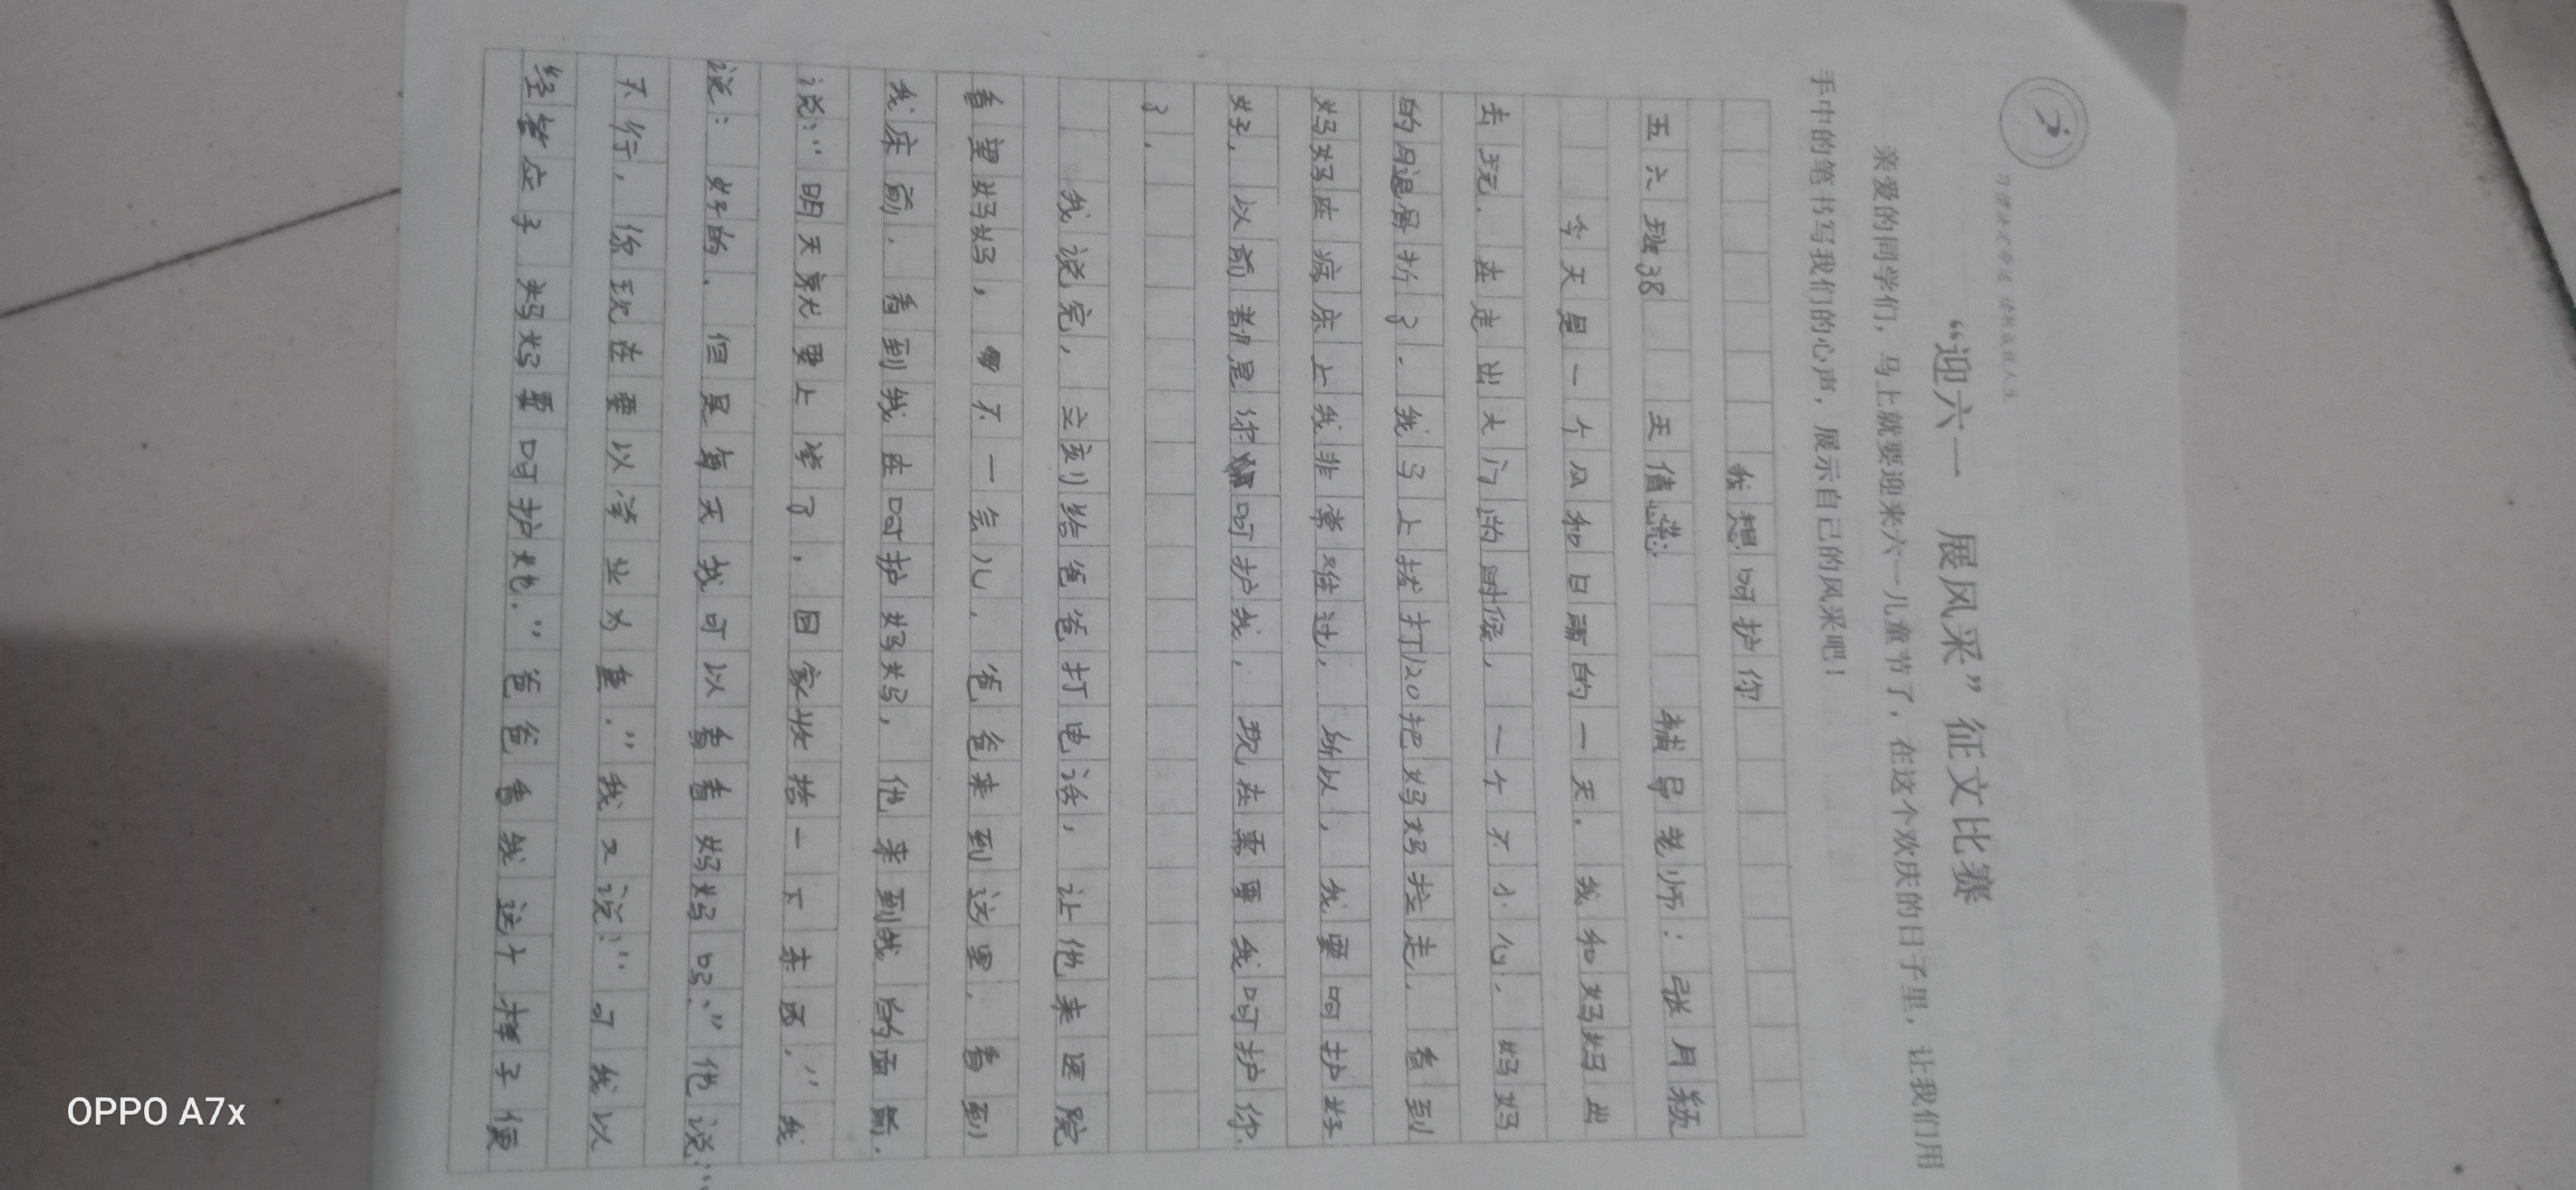 习惯决定命运 读书成就人生
“迎六一 展风采”征文比赛
亲爱的同学们，马上就要迎来六一儿童节了，在这个欢庆的日子里，让我们用
手中的笔书写我们的心声，展示自己的风采吧！
我想呵护你
五六班38 王信懿 辅导老师：张月颖
今天是一个风和日丽的一天。我和妈妈出
去玩.在走出大门的时候，一个不小心.妈妈
的腿骨折了.我马上拨打120把妈妈拉走.看到
妈妈在病床上我非常难过，所以，我要呵护好
好，以前都是你呵护我，现在需要我呵护你
了.
我说完，立刻给爸爸打电话，让他来医院
看望妈妈，不一会儿.爸爸来到这里.看到
我床前.看到我在呵护妈妈，他来到我的面前.
说：“明天就要上学了，回家收拾一下东西.”我
说：好的.但是每天我可以看看妈妈吗.”他说：“
不行，你现在要以学业为重.”我又说：“可我以
经答应了妈妈要呵护她.”爸爸看我这个样子便
OPPO A7x